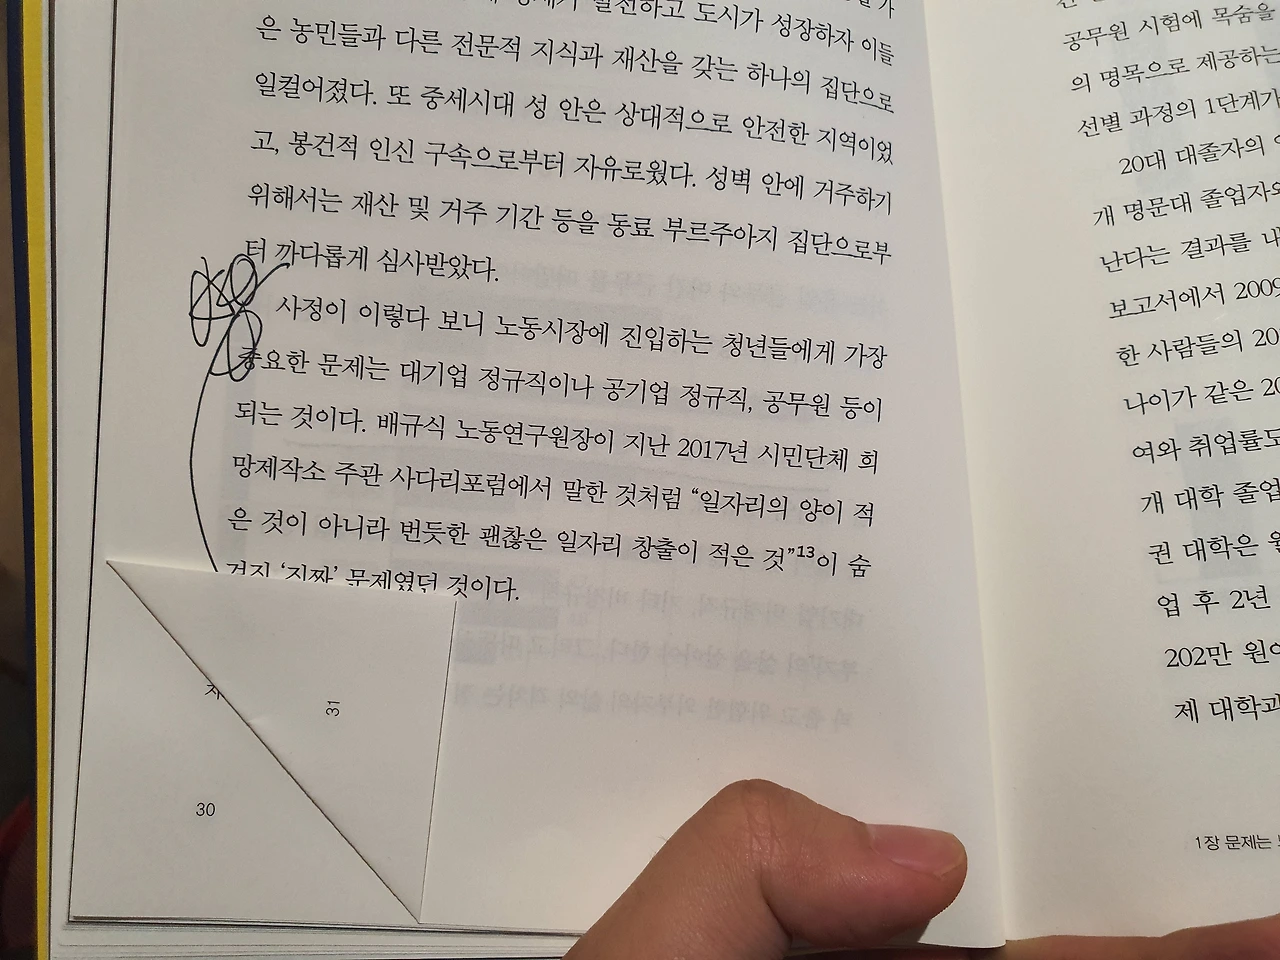 발전하고 도시가 성장하자 이들
은 농민들과 다른 전문적 지식과 재산을 갖는 하나의 집단으로
일컬어졌다. 또 중세시대 성 안은 상대적으로 안전한 지역이었
고, 봉건적 인신 구속으로부터 자유로웠다. 성벽 안에 거주하기
위해서는 재산 및 거주 기간 등을 동료 부르주아지 집단으로부
터 까다롭게 심사받았다.
사정이 이렇다 보니 노동시장에 진입하는 청년들에게 가장
중요한 문제는 대기업 정규직이나 공기업 정규직, 공무원 등이
되는 것이다. 배규식 노동연구원장이 지난 2017년 시민단체 희
망제작소 주관 사다리포럼에서 말한 것처럼 “일자리의 양이 적
은 것이 아니라 번듯한 괜찮은 일자리 창출이 적은 것”13이 숨
겨진 ‘진짜’ 문제였던 것이다.
31
30
공무원 시험에 목숨을
의 명목으로 제공하는
선별 과정의 1단계가
20대 대졸자의
개 명문대 졸업자와
난다는 결과를 내
보고서에서 2009
한 사람들의 20
나이가 같은 20
여와 취업률도
개 대학 졸업
권 대학은
업 후 2년
202만 원
제 대학과
1장 문제는